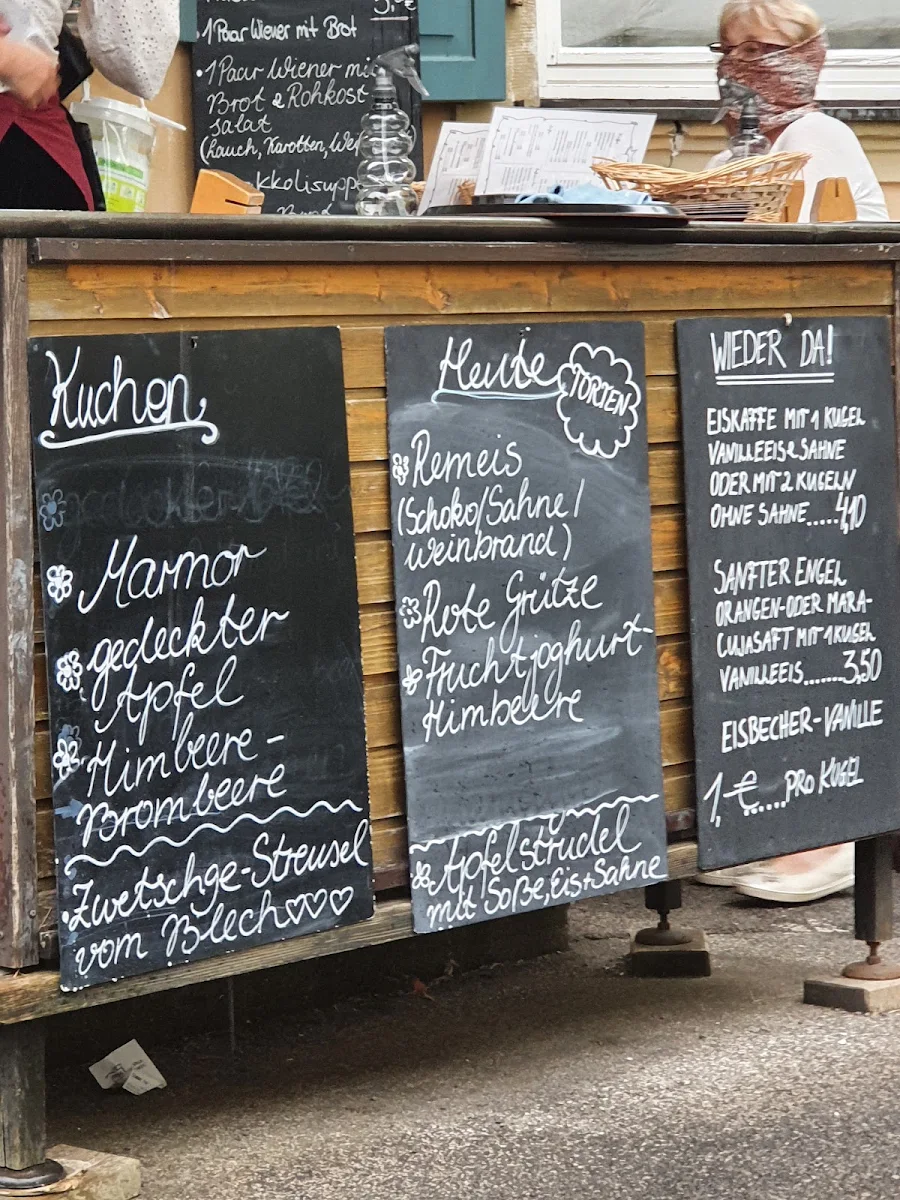 1 Paar Wiener mit Brot
1 Paar Wiener mi
Brot & Rohkost
salat
(Lauch, Karotten, Wei
kkolisuppe
Kuchen
gedeckter Apfel
Marmor
gedeckter
Apfel
Himbeere-
Brombeere
Zwetschge-Streusel
vom Blech♡♡♡
Heute
TORTEN
Remeis
(Schoko/Sahne/
Weinbrand)
Rote Grütze
Fruchtjoghurt-
Himbeere
Apfelstrudel
mit Soße, Eis+Sahne
WIEDER DA!
EISKAFFE MIT 1 KUGEL
VANILLEEIS & SAHNE
ODER MIT 2 KUGELN
OHNE SAHNE.....4,10
SANFTER ENGEL
ORANGEN-ODER MARA-
CUJASAFT MIT 1 KUGEL
VANILLEEIS.......3,50
EISBECHER-VANILLE
1,€.....PRO KUGEL